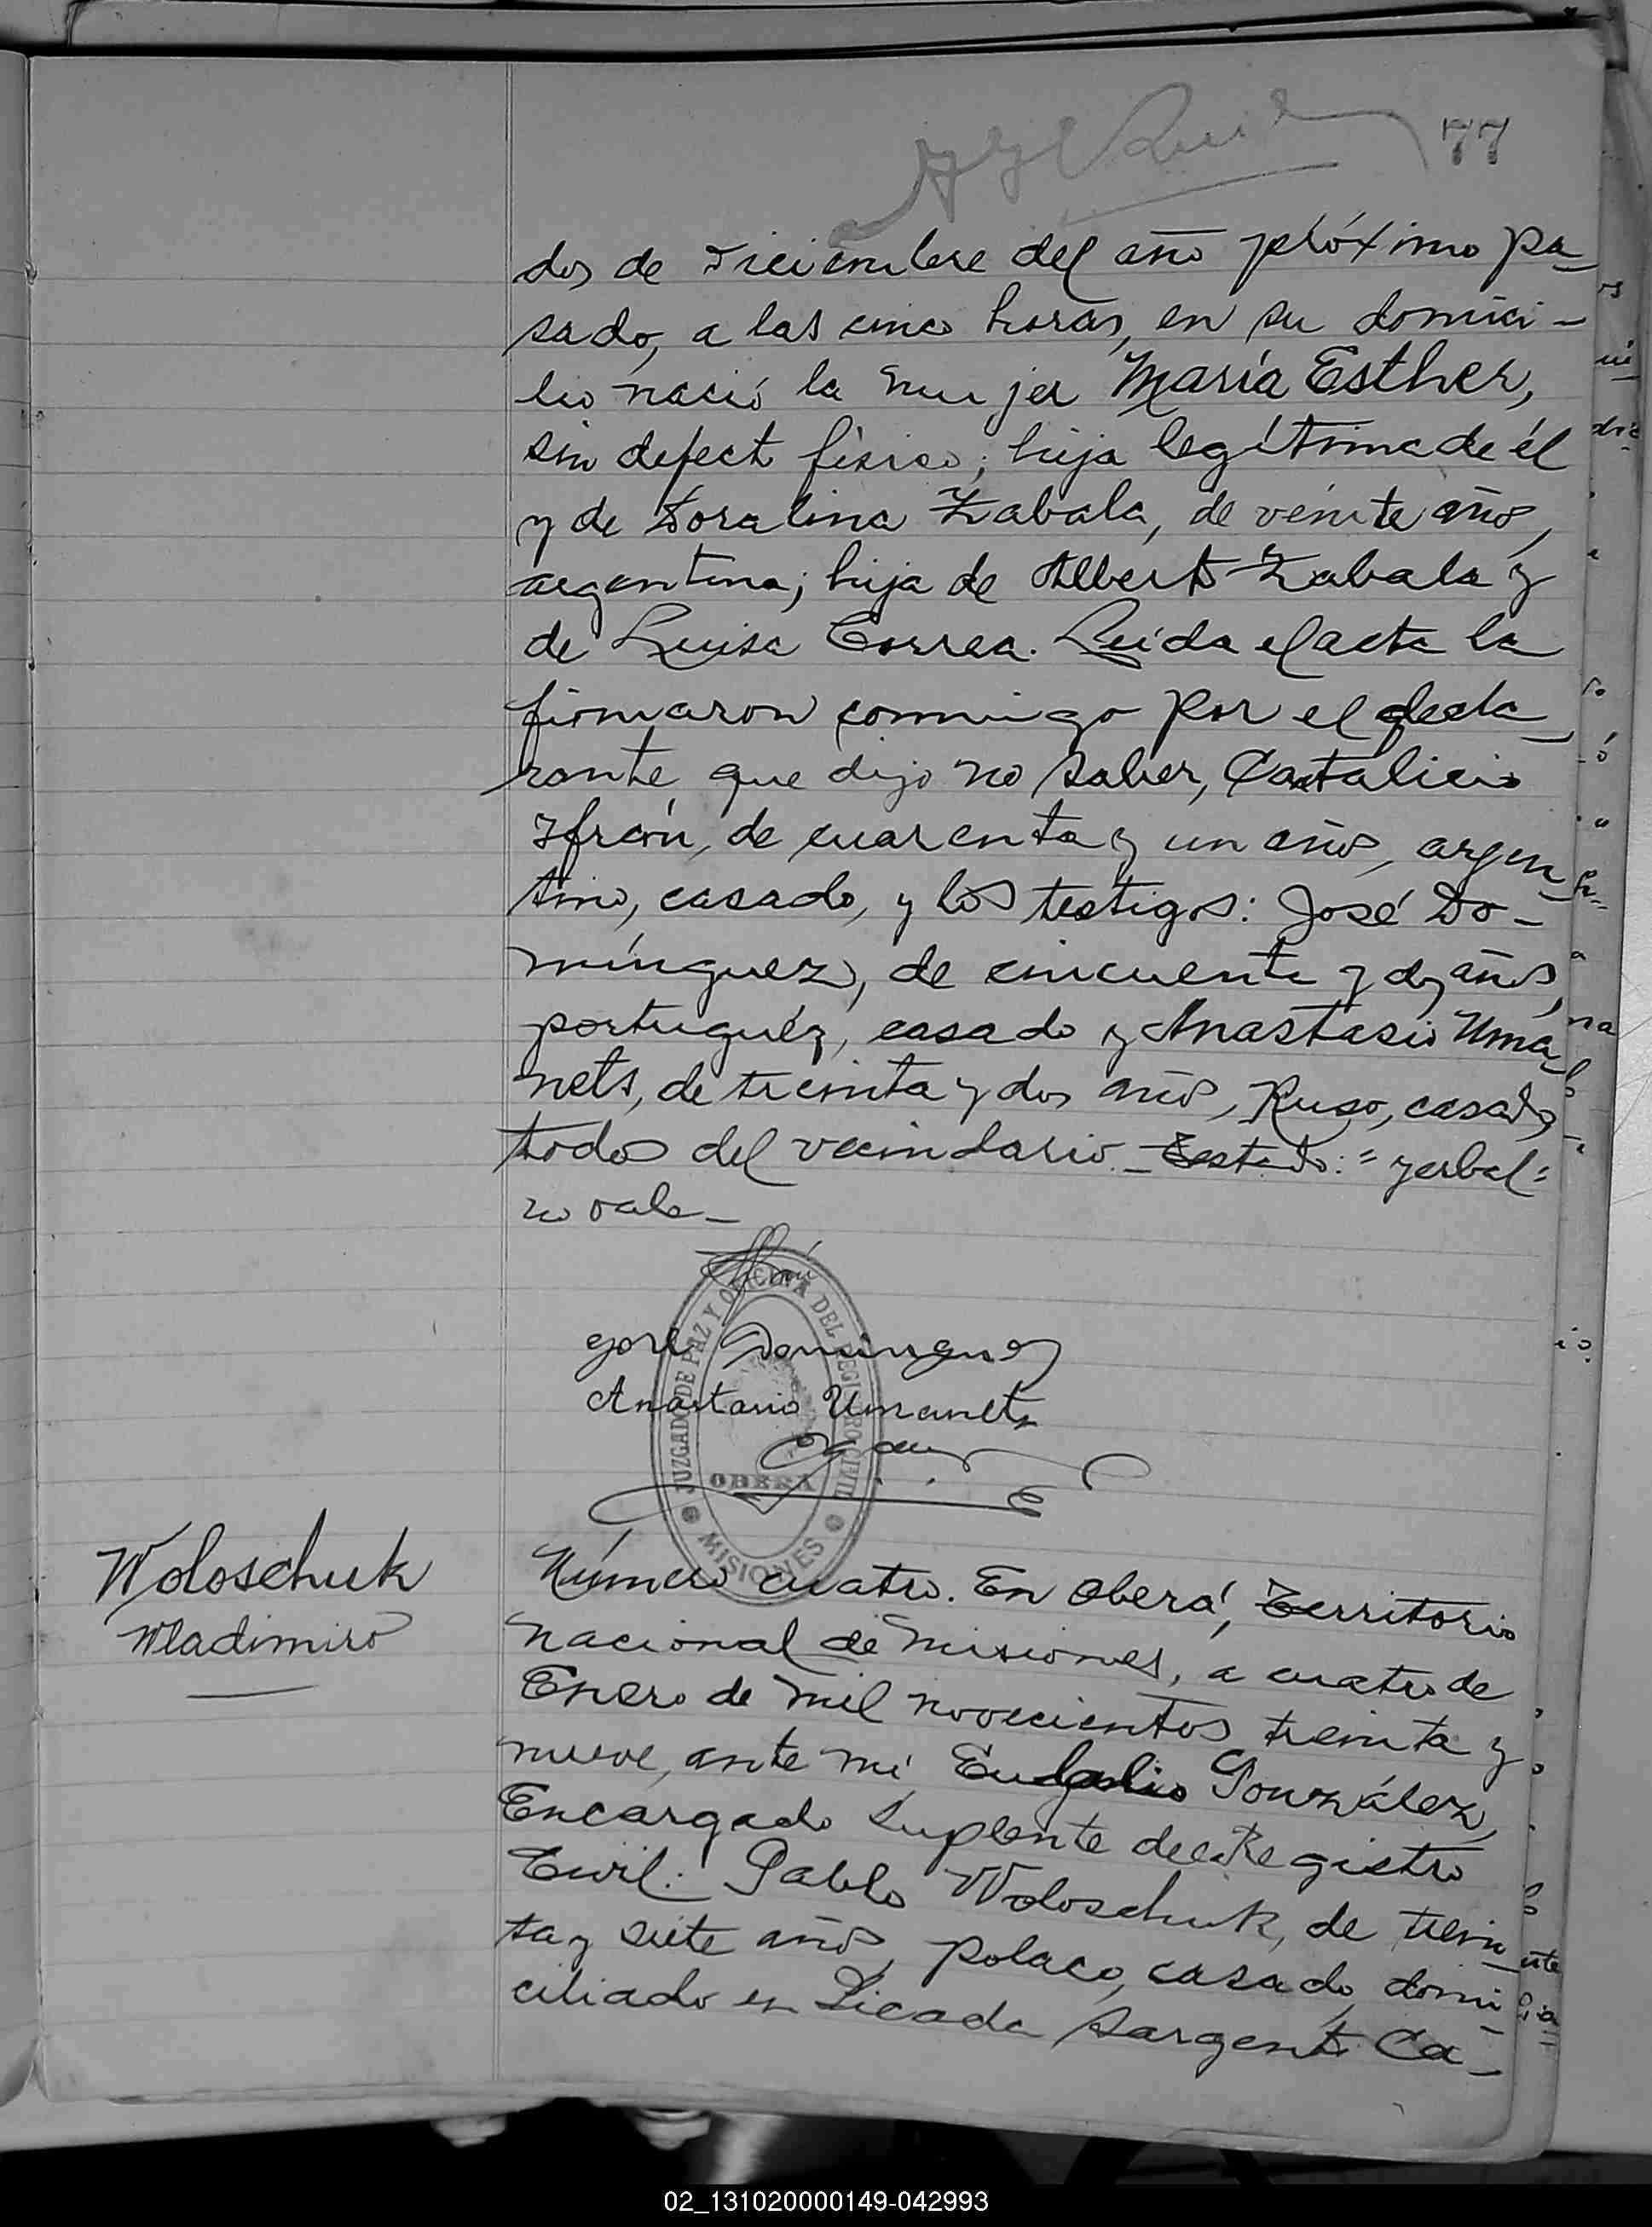 77
dos de Diciembre del año próximo pa-
sado, a las cinco horas, en su domici-
lio nació la mujer María Esther,
sin defecto físico; hija legítima de él
y de Doralina Zabala, de veinte años,
argentina; hija de Alberto Zabala y
de Luisa Correa. Leída el acta la
firmaron conmigo por el decla-
rante que dijo no saber, Castalicio
Ifrán, de cuarenta y un años, argen-
tino, casado, y los testigos: José Do-
mínguez, de cincuenta y dos años,
portuguéz, casado y Anastasio Uma-
nets, de treinta y dos años, Ruso, casado,
todos del vecindario. Testado: "yerbal"
no vale-
José Dominguez
Anastasio Umanets
JUZGADO DE PAZ Y OFICINA DEL REGISTRO CIVIL
OBERÁ
MISIONES
Woloschuk
Wladimiro
Número cuatro. En Oberá, Territorio
nacional de Misiones, a cuatro de
Enero de mil novecientos treinta y
nueve, ante mi Eudalio González,
Encargado Suplente del Registro
Civil: Pablo Woloschuk, de trein-
ta y siete años, polaco, casado, domi-
ciliado en Picada Sargento Ca-
02_131020000149-042993